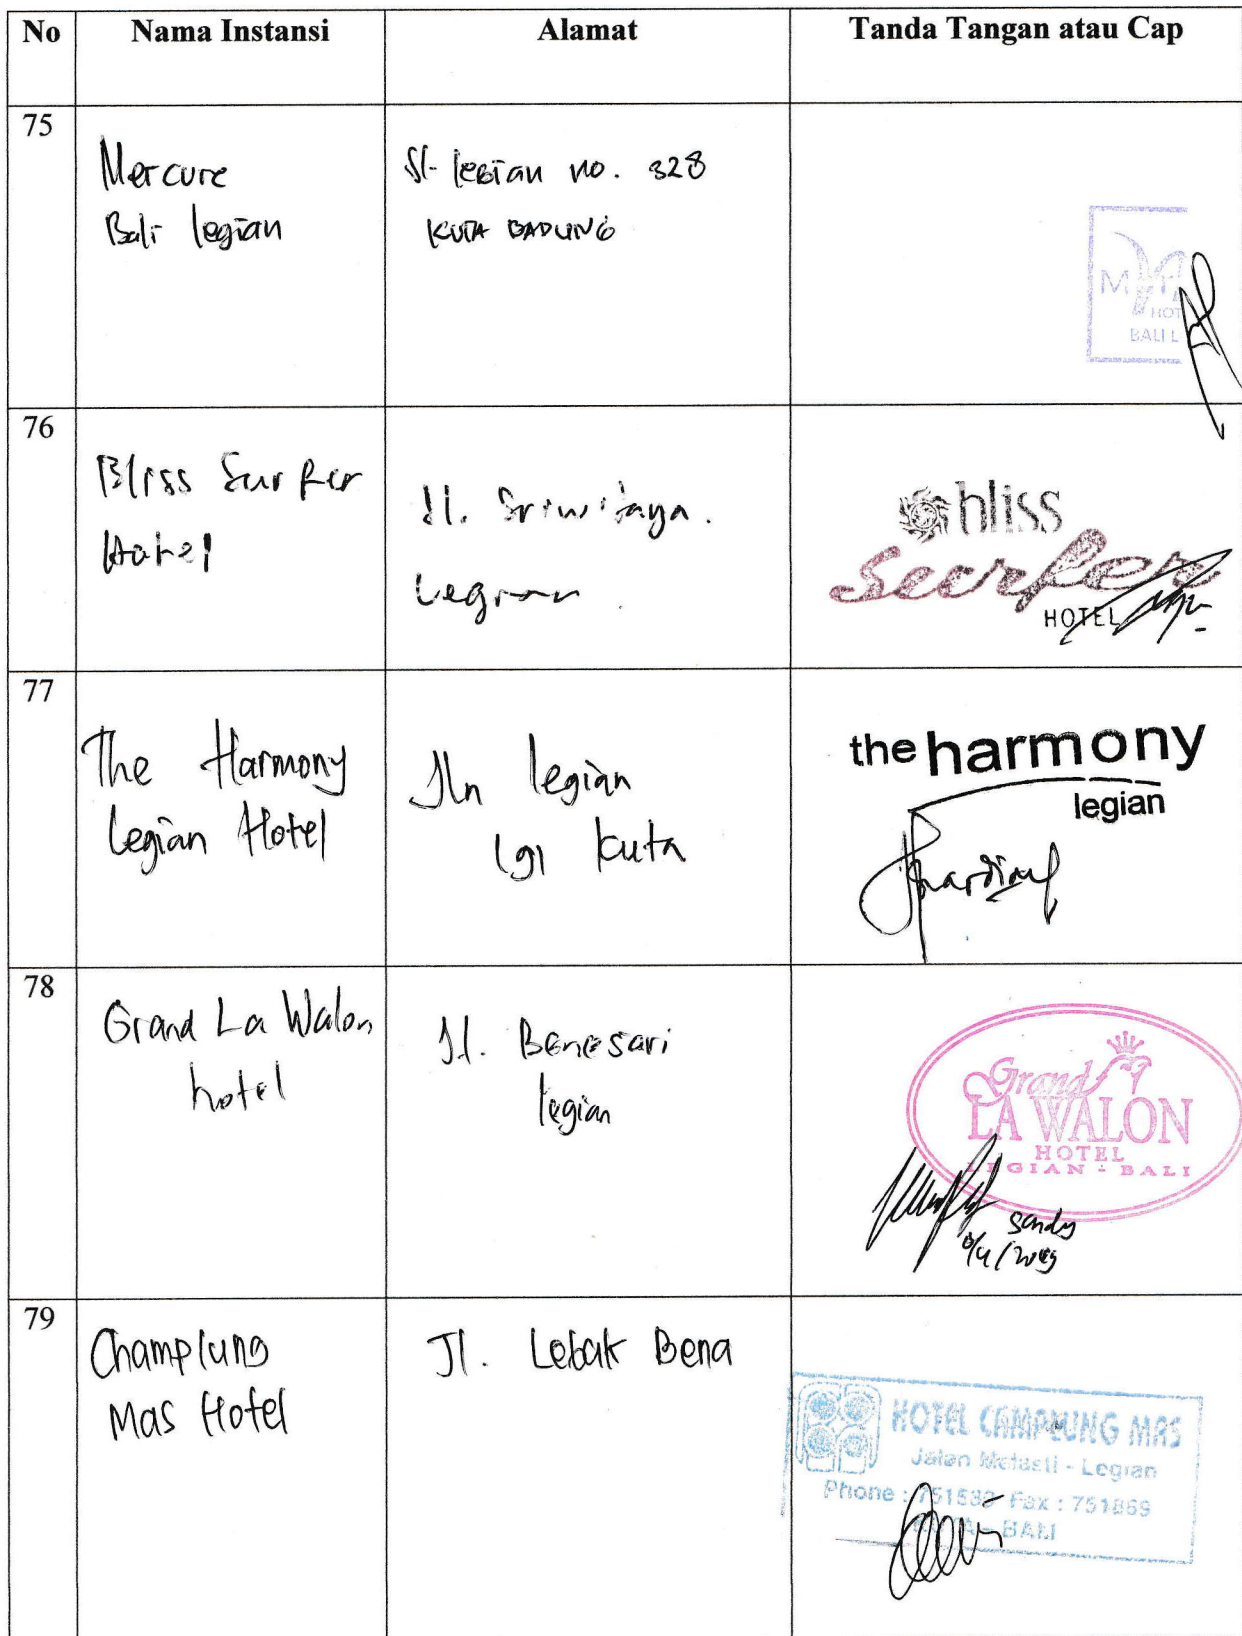 No Nama Instansi Alamat Tanda Tangan atau Cap
75
Mercure
Bali legian
Jl. legian no. 328
KUTA BADUNG
HOT
BALI L
76
Bliss Surfer
Hotel
Jl. Sriwijaya.
Legian
bliss
surfer
HOTEL
77
The Harmony
Legian Hotel
Jln legian
lgi kuta
the harmony
legian
78
Grand La Walon
hotel
Jl. Benesari
legian
Grand
LA WALON
HOTEL
LEGIAN - BALI
Sandy
79
Champlung
Mas Hotel
Jl. Lebak Bena
HOTEL CAMPLUNG MAS
Jalan Melasti - Legian
Phone : 751580 Fax : 751869
KUTA - BALI